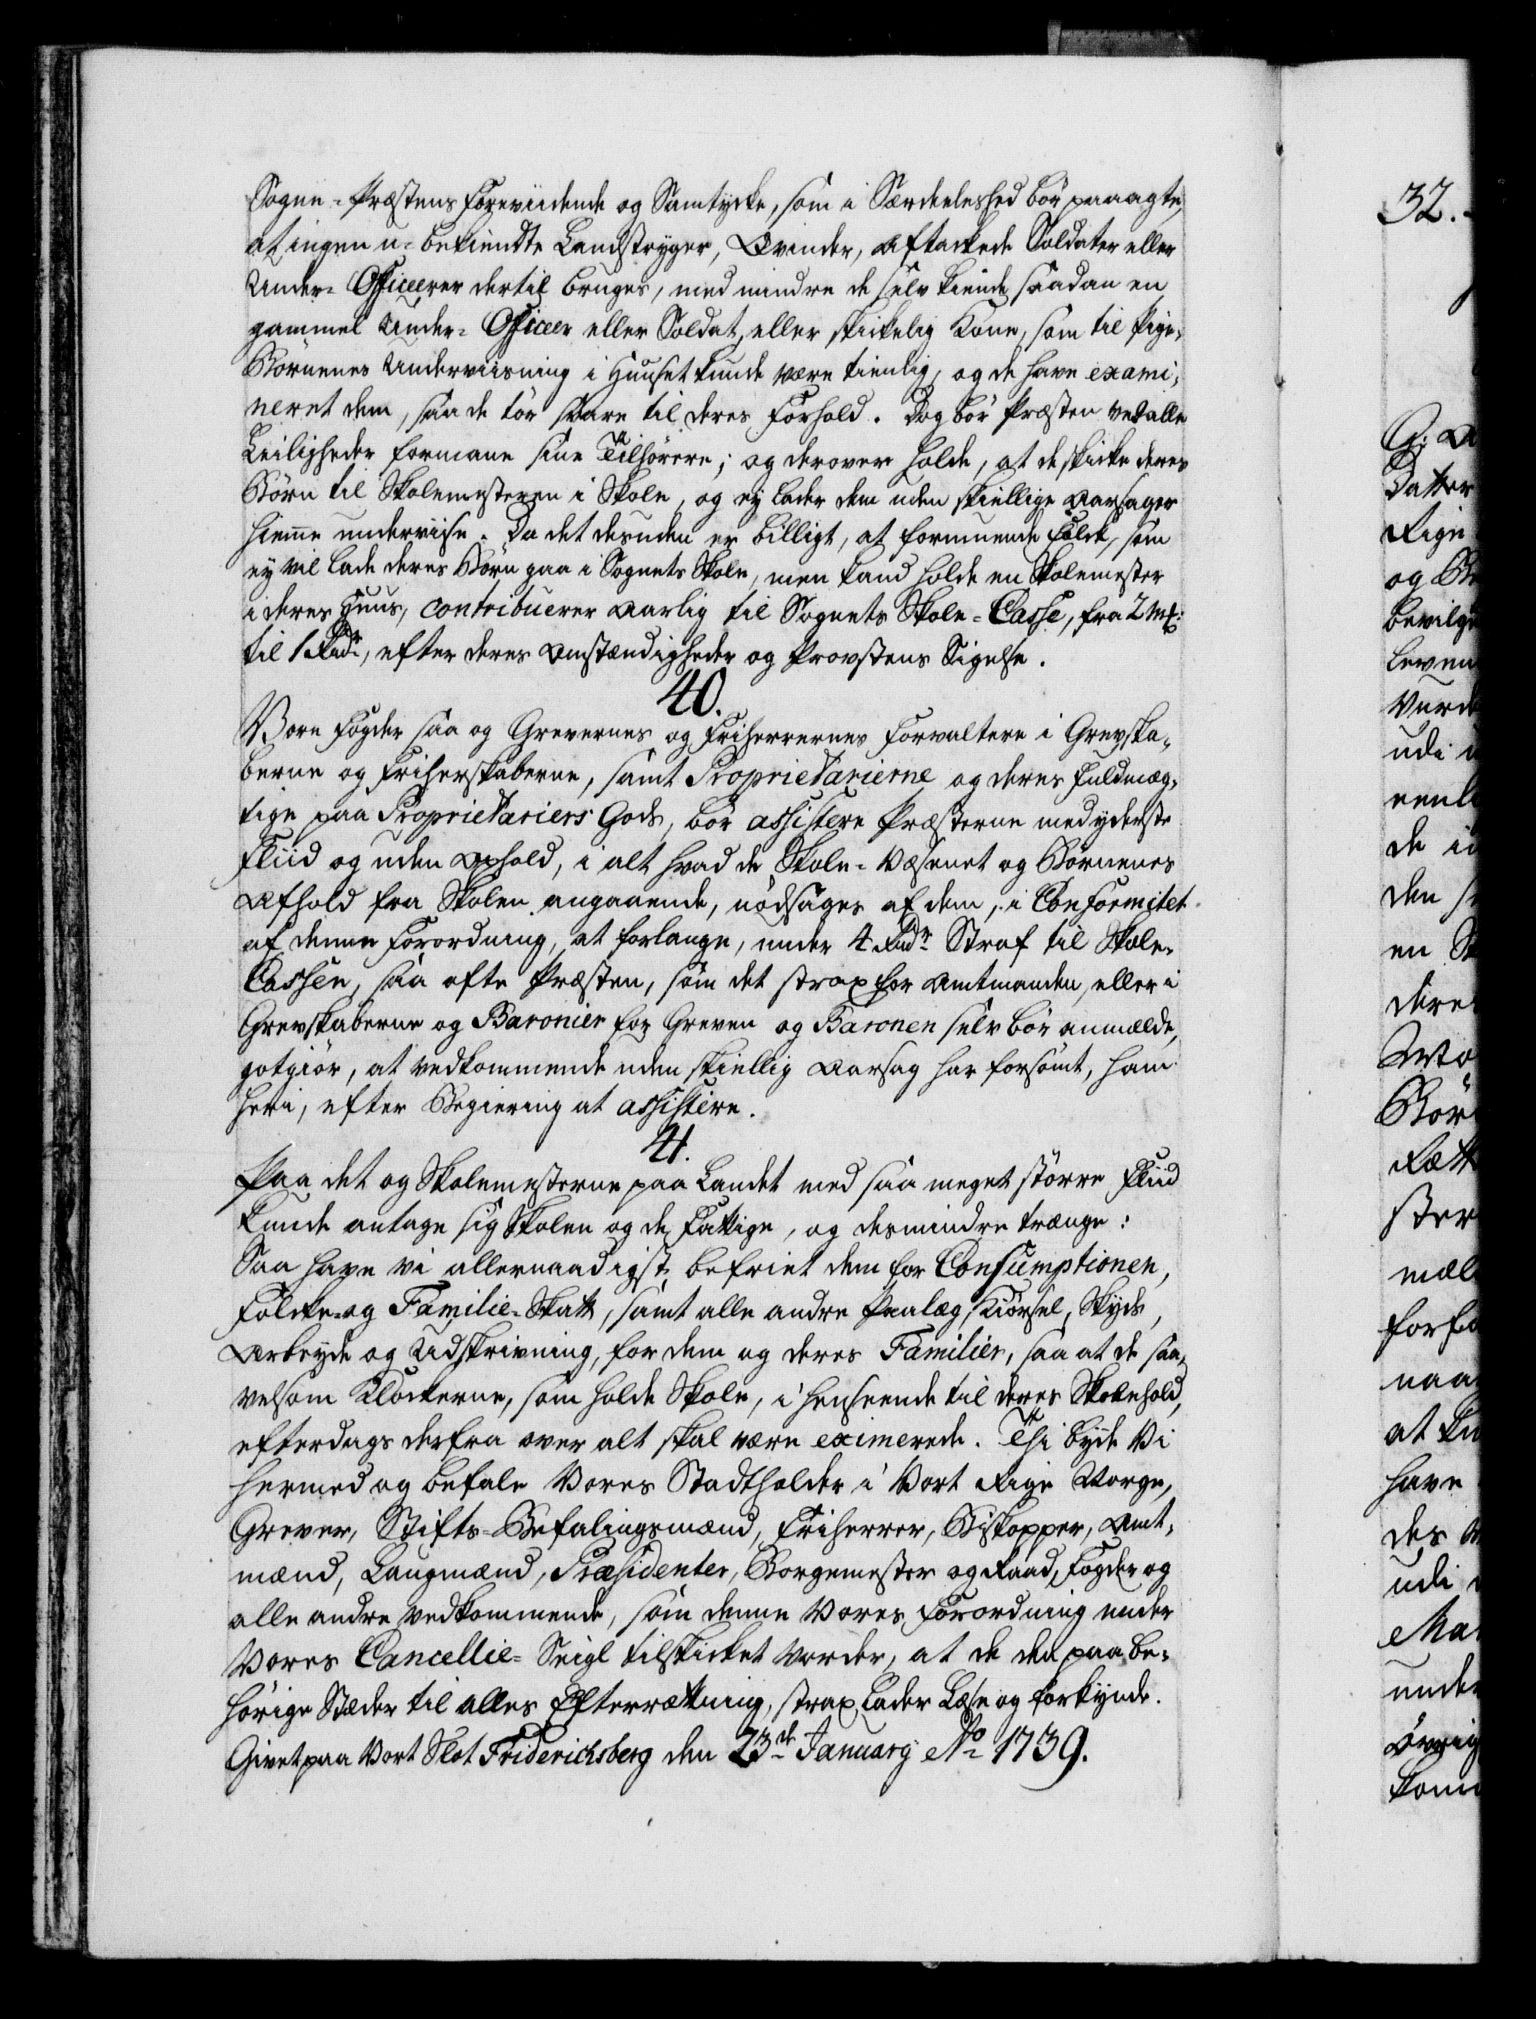 Sogne-Præstens Foreviidende og Samtycke, som i Særdeeleshed bør paaagte,
at ingen u-bekiendte Landstryger, Qvinder, Aftackede Soldater eller
Under-Officerer dertil bruges, med mindre de selv kiende saadan en
gammel Under-Officer eller Soldat, eller skickelig Kone, som til Pige-
Børnenes Underviisning i Huuset kunde være tienlig, og de have exami-
neret dem, saa de tør svare til deres Forhold. Dog bør Præsten ved alle
Leiligheder formane sine Tilhørere; og derover holde, at de skicke deres
Børn til Skolemesteren i Skole, og ey lader dem uden skiellige Aarsager
hiemme underviise. Da det desuden er billigt, at formuende Folck, som
ey vil lade deres Børn gaa i Sognets Skole, men kand holde en Skolemester
i deres Huus, contribuerer Aarlig til Sognets Skole-Casse, fra 2 Mk:
til 1 Rdr, efter deres Omstændigheder og Provstens Sigelse.
40.
Vore Fogder saa og Grevernes og Friherrernes Forvaltere i Grevska-
berne og Friherskaberne, samt Proprietarierne og deres Fuldmæg-
tige paa Proprietariers Gods, bør assistere Præsterne med yderste
Fliid og uden Ophold, i alt hvad de Skole-Væsenet og Børnenes
Afhold fra Skolen angaaende, nødsages af dem, i Conformitet
af denne Forordning, at forlange, under 4 Rdr Straf til Skole-
Cassen, saa ofte Præsten, som det strax for Amtmanden, eller i
Grevskaberne og Baronier for Greven og Baronen selv bør anmælde,
gotgiør, at vedkommende uden skiellig Aarsag har forsømt, ham
heri, efter Begiering at assistere.
41.
Paa det og Skolemesterne paa Landet med saa meget større Fliid
kunde antage sig Skolen og de Fattige, og desmindre trænge:
Saa have vi allernaadigst befriet dem for Consumptionen,
Folcke- og Familie-Skatt, samt alle andre Paalæg, Kiørsel, Skyds,
Arbeyde og Udskrivning, for dem og deres Familier, saa at de saa-
velsom Klockerne, som holde Skole, i henseende til deres Skolehold,
efterdags derfra over alt skal være eximerede. Thi byde Vi
hermed og befale Vores Stadtholder i Vort Rige Norge,
Grever, Stifts-Befalingsmænd, Friherrer, Biskopper, Amt-
mænd, Laugmænd, Præsidenter, Borgemester og Raad, Fogder og
alle andre vedkommende, som denne Vores Forordning under
Vores Cancellie-Seigl tilskicket vorder, at de den paa be-
hørige Stæder til alles Efterrættning, strax lader Læse og forkynde.
Givet paa Vort Slot Friderichsberg den 23de January Ao 1739.
32.